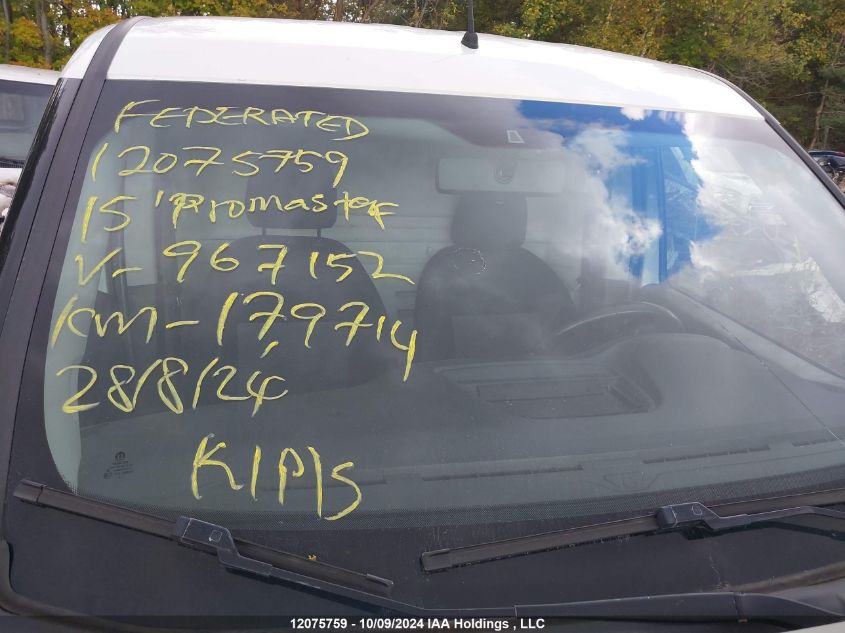 FEDERATED
12075759
15' Promaster
V- 967152
KM- 179714
28/8/24
K/P/S
12075759 - 10/09/2024 IAA Holdings , LLC